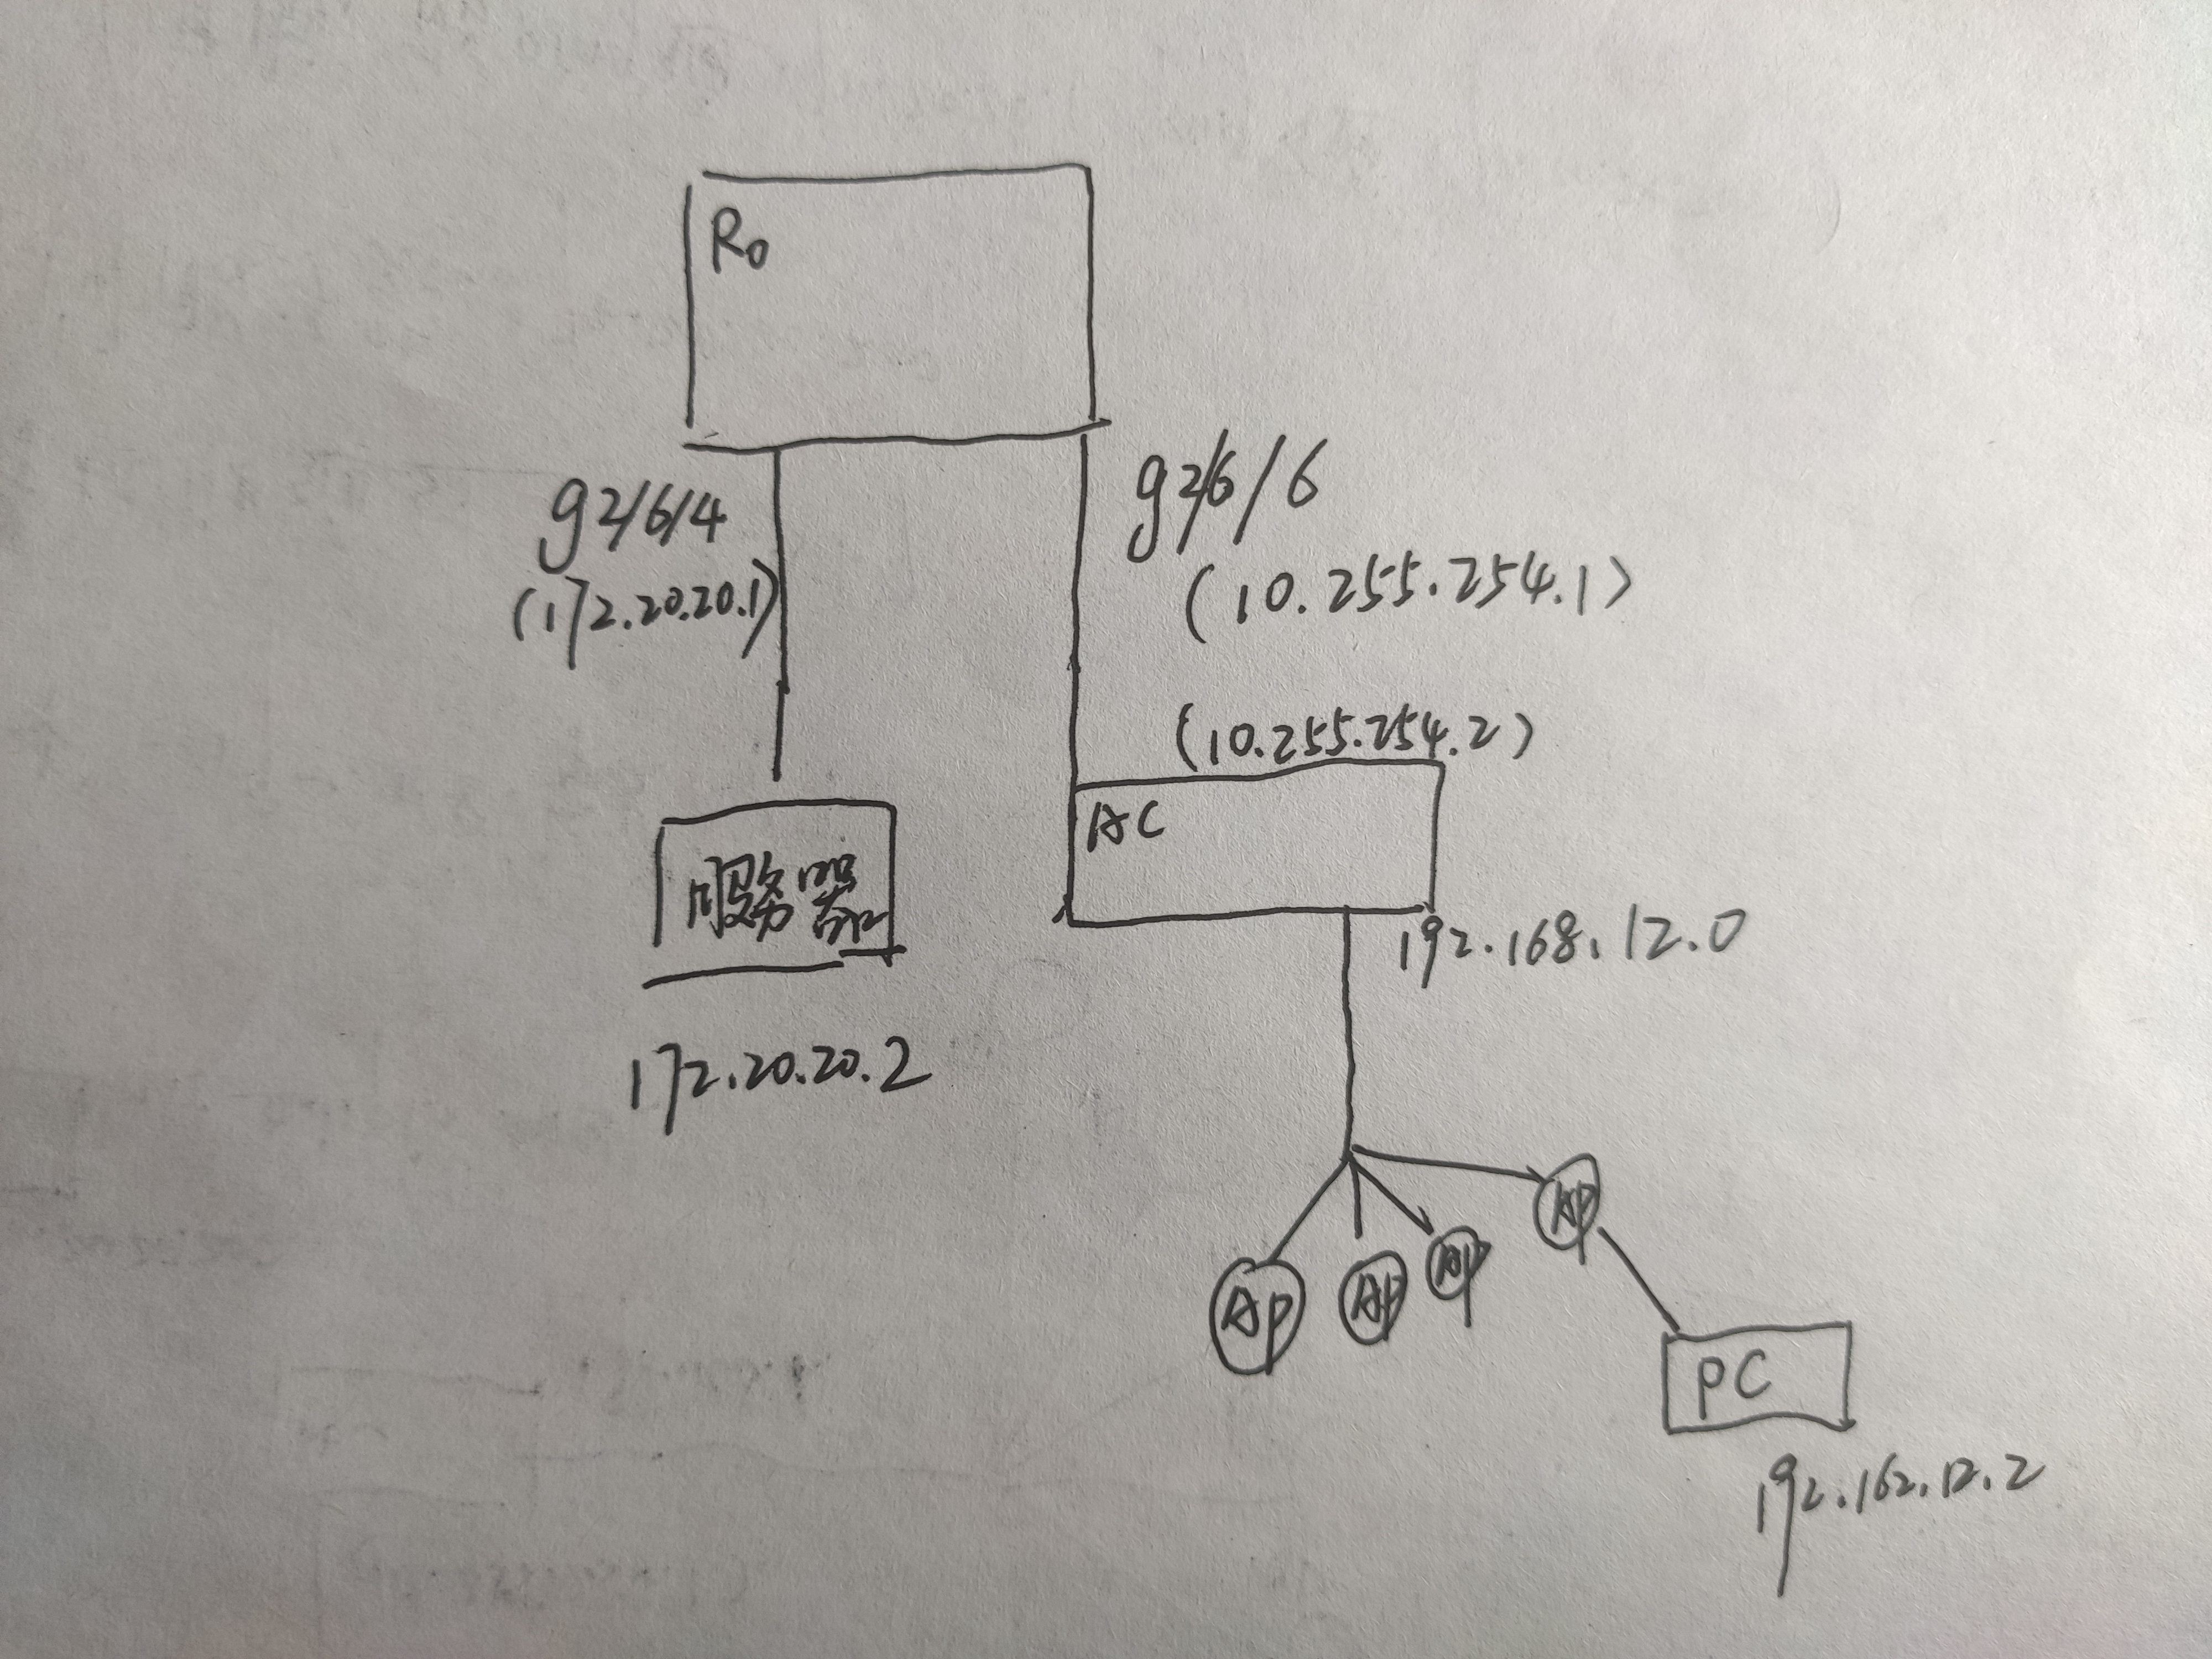 R0
g2/6/4
(172.20.20.1)
g2/6/6
(10.255.254.1)
(10.255.254.2)
AC
服务器
172.20.20.2
192.168.12.0
AP
AP
AP
AP
PC
192.162.12.2